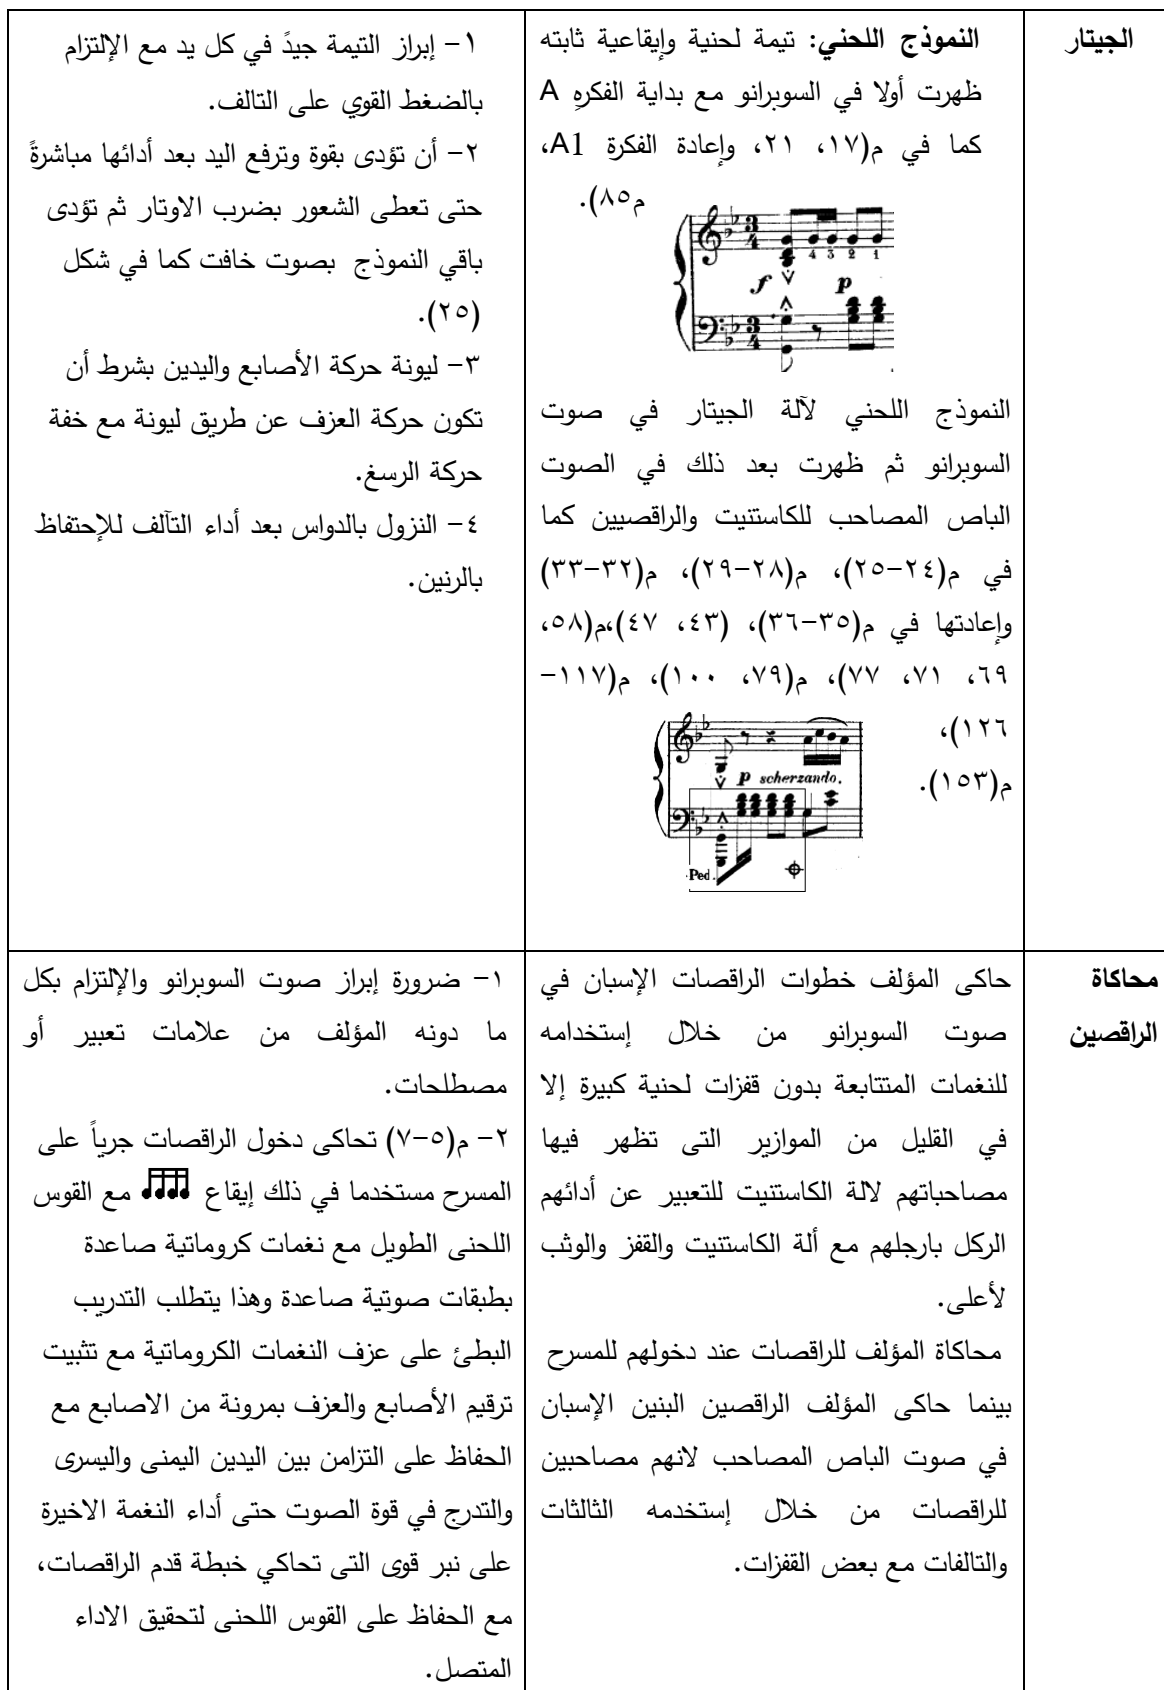 الجيتار
النموذج اللحني: تيمة لحنية وإيقاعية ثابته
ظهرت أولا في السوبرانو مع بداية الفكرهِ A
كما في م(١٧، ٢١، وإعادة الفكرة A1،
م٨٥).
3 4
4 3 2 1
f p
3 4
النموذج اللحني لآلة الجيتار في صوت
السوبرانو ثم ظهرت بعد ذلك في الصوت
الباص المصاحب للكاستنيت والراقصيين كما
في م(٢٤-٢٥)، م(٢٨-٢٩)، م(٣٢-٣٣)
وإعادتها في م(٣٥-٣٦)، (٤٣، ٤٧)،م(٥٨،
٦٩، ٧١، ٧٧)، م(٧٩، ١٠٠)، م(١١٧-
١٢٦)،
م(١٥٣).
p scherzando.
Ped.
١- إبراز التيمة جيدً في كل يد مع الإلتزام
بالضغط القوي على التالف.
٢- أن تؤدى بقوة وترفع اليد بعد أدائها مباشرةً
حتى تعطى الشعور بضرب الاوتار ثم تؤدى
باقي النموذج بصوت خافت كما في شكل
(٢٥).
٣- ليونة حركة الأصابع واليدين بشرط أن
تكون حركة العزف عن طريق ليونة مع خفة
حركة الرسغ.
٤- النزول بالدواس بعد أداء التآلف للإحتفاظ
بالرنين.
محاكاة
الراقصين
حاكى المؤلف خطوات الراقصات الإسبان في
صوت السوبرانو من خلال إستخدامه
للنغمات المتتابعة بدون قفزات لحنية كبيرة إلا
في القليل من الموازير التى تظهر فيها
مصاحباتهم لالة الكاستنيت للتعبير عن أدائهم
الركل بارجلهم مع ألة الكاستنيت والقفز والوثب
لأعلى.
محاكاة المؤلف للراقصات عند دخولهم للمسرح
بينما حاكى المؤلف الراقصين البنين الإسبان
في صوت الباص المصاحب لانهم مصاحبين
للراقصات من خلال إستخدمه الثالثات
والتالفات مع بعض القفزات.
١- ضرورة إبراز صوت السوبرانو والإلتزام بكل
ما دونه المؤلف من علامات تعبير أو
مصطلحات.
٢- م(٥-٧) تحاكى دخول الراقصات جرياً على
المسرح مستخدما في ذلك إيقاع مع القوس
اللحنى الطويل مع نغمات كروماتية صاعدة
بطبقات صوتية صاعدة وهذا يتطلب التدريب
البطئ على عزف النغمات الكروماتية مع تثبيت
ترقيم الأصابع والعزف بمرونة من الاصابع مع
الحفاظ على التزامن بين اليدين اليمنى واليسرى
والتدرج في قوة الصوت حتى أداء النغمة الاخيرة
على نبر قوى التى تحاكي خبطة قدم الراقصات،
مع الحفاظ على القوس اللحنى لتحقيق الاداء
المتصل.